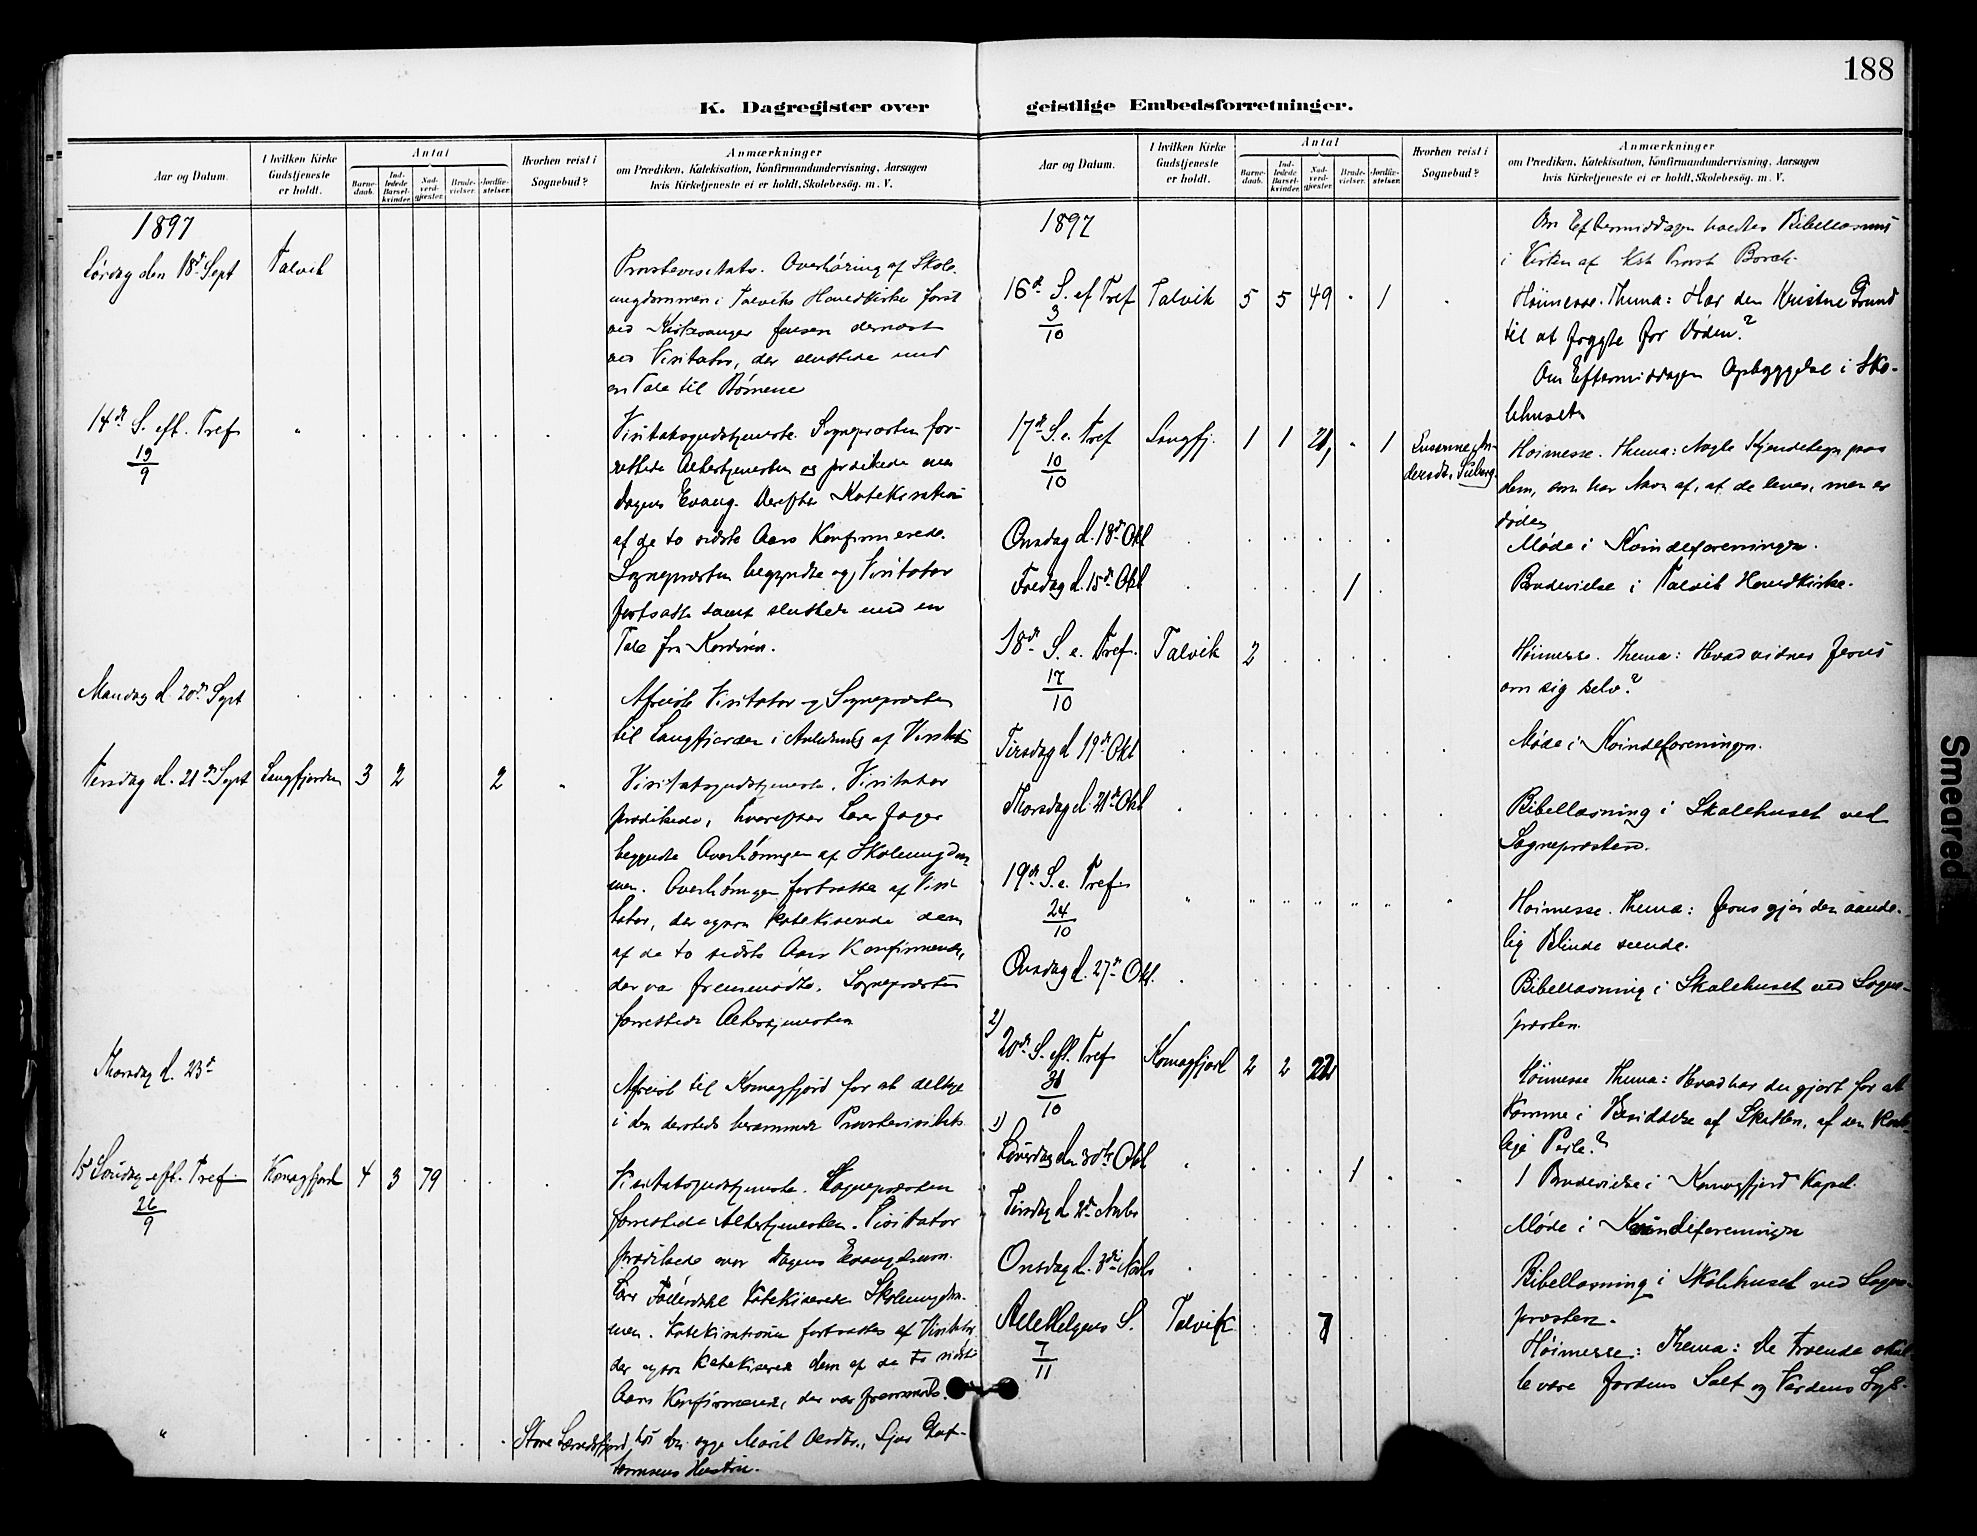 188
K. Dagregister over
geistlige Embedsforretninger.
Aar og Datum.
I hvilken Kirke
Gudstjeneste
er holdt.
Antal
Barne-
daab.
Ind-
ledede
Barsel-
kvinder.
Nad-
verd-
gjester.
Brude-
vielser.
Jordfæ-
stelser.
Hvorhen reist i
Sognebud?
Anmærkninger
om Prædiken, Katekisation, Konfirmandundervisning, Aarsagen
hvis Kirketjeneste ei er holdt, Skolebesøg. m. V.
1897
Lørdag den 18de Sept Talvik
Provstevisitats. Overhøring af Skole-
ungdommen i Talviks Hovedkirke først
ved Kirkesanger Jensen dernæst
ved Visitator, der sluttede med
en Tale til Børnene
14de S. eft. Tref. "
19
9
Visitatsgudstjeneste. Sognepræsten for-
rettede Altertjenesten og prædikede over
Dagens Evang. Derefter Katekisation
af de to sidste Aars Konfirmerede.
Sognepræsten begyndte og Visitator
fortsatte samt sluttede med en
Tale fra Kordøren.
Mandag d. 20de Sept
Afreiste Visitator og Sognepræsten
til Langfjorden i Anledning af Visitats
Tirsdag d. 21de Sept Langfjorden 3 2 2 "
Visitatsgudstjeneste. Visitator
prædikede, hvorefter Lærer
begyndte Overhøringen af Skoleungdom-
men. Overhøringen fortsattes af Visi-
tator, der ogsaa katekiserede dem
af de to sidste Aars Konfirmerede,
der var fremmødte. Sognepræsten
forrettede Altertjenesten
Thorsdag d. 23de
Afreist til Komagfjord for at deltage
i den dersteds berammede Provstevisitats.
15de Søndag eft. Tref. Komagfjord 4 3 79
26
9
Visitatsgudstjeneste. Sognepræsten
forrettede Altertjenesten. Visitator
prædikede over Dagens Evangelium.
Lærer katekiserede Skoleungdom-
men. Katekisationen fortsattes af Visitator,
der ogsaa katekiserede dem af de to sidste
Aars Konfirmerede, der var fremmødte.
" Store
Hustru.
Aar og Datum.
I hvilken Kirke
Gudstjeneste
er holdt.
Antal
Barne-
daab.
Ind-
ledede
Barsel-
kvinder.
Nad-
verd-
gjester.
Brude-
vielser.
Jordfæ-
stelser.
Hvorhen reist i
Sognebud?
Anmærkninger
om Prædiken, Katekisation, Konfirmandundervisning, Aarsagen
hvis Kirketjeneste ei er holdt, Skolebesøg. m. V.
1897
Om Eftermiddagen holdtes Bibellæsning
i Kirken af Provst
16de S. ef Tref Talvik 5 5 49 " 1
3
10
Høimesse. Thema: Har den Kristne Grund
til at frygte for Døden?
Om Eftermiddagen Opbyggelse i Sko-
lehuset
17de S. e. Tref Langfj. 1 1 21 " 1
10
10
Høimesse. Thema: Nogle Kjendetegn paa
dem, som har Navn af, at de lever, men er
døde
Onsdag d. 13de Okt
Møde i Kvindeforeningen.
Fredag d. 15de Okt 1
Brudevielse i Talvik Hovedkirke.
18de S. e. Tref. Talvik 2
17
10
Høimesse. Thema: Hvad vidner Jesus
om sig selv?
Tirsdag d. 19de Okt
Møde i Kvindeforeningen.
Thorsdag d. 21de Okt
Bibellæsning i Skolehuset ved
Sognepræsten.
19de S. e. Tref. "
24
10
Høimesse. Thema: Jesus gjør den aande-
lig Blinde seende.
Onsdag d. 27de Okt.
Bibellæsning i Skolehuset ved Sogne-
præsten.
2)
20de S. eft. Tref Komagfjord 2 2 22
31
10
Høimesse Thema: Hvad har du gjort for at
komme i Besiddelse af Skatten, af den kost-
lige Perle?
1)
Lørdag den 30de Okt " 1
1 Brudevielse i Komagfjord Kapel.
Tirsdag d. 2den Novbr
Møde i Kvindeforeningen
Onsdag d. 3die Novbr
Bibellæsning i Skolehuset ved Sogne-
præsten.
Alle Helgens S. Talvik 7
7
11
Høimesse: Thema: De Troende skul
le være Jordens Salt og Verdens Lys.
Smeared